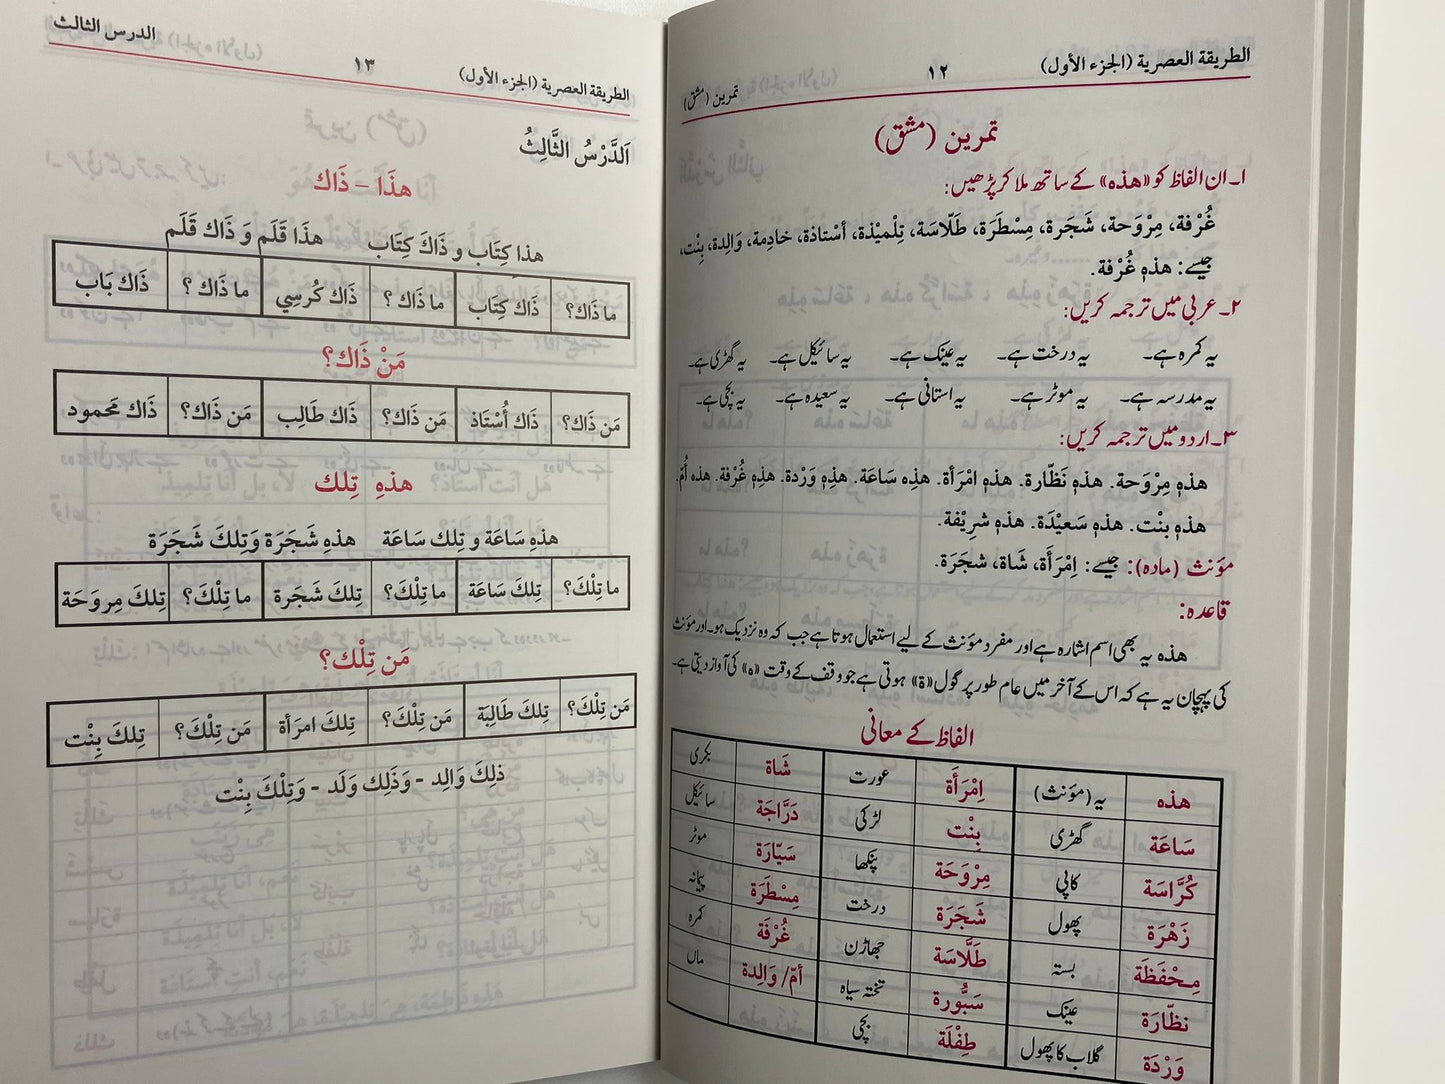 الطريقة العصرية (الجزء الأول) ١٢ تمرين (مشق)
تمرین (مشق)
۱۔ ان الفاظ کو «هذه» کے ساتھ ملا کر پڑھیں:
غُرْفة، مِرْوَحة، شَجَرَة، مِسْطَرَة، طَلّاسَة، تِلْمِيْذة، أسْتاذة، خادِمة، وَالِدة، بِنْت،
جیسے: هذهٖ غُرْفة.
۲۔ عربی میں ترجمہ کریں:
یہ کمرہ ہے۔ یہ درخت ہے۔ یہ عینک ہے۔ یہ سائیکل ہے۔ یہ گھڑی ہے۔
یہ مدرسہ ہے۔ یہ موٹر ہے۔ یہ استانی ہے۔ یہ سعیدہ ہے۔ یہ بچی ہے۔
۳۔ اردو میں ترجمہ کریں:
هذهٖ مِرْوَحة. هذهٖ نَظّارة. هذهٖ امْرَأة. هذِهِ سَاعَة. هذِهٖ وَرْدة. هذِهٖ غُرْفة. هذه أُمّ.
هذهٖ بنْت. هذهٖ سَعيْدَة. هذهٖ شرِيْفة.
مؤنث (مادہ): جیسے: اِمْرَأَة، شَاة، شجَرَة.
قاعدہ:
هذه یہ بھی اسم اشارہ ہے اور مفرد مؤنث کے لیے استعمال ہوتا ہے جب کہ وہ نزدیک ہو۔ اور مؤنث
کی پہچان یہ ہے کہ اس کے آخر میں عام طور پر گول «ة» ہوتی ہے جو وقف کے وقت «ہ» کی آواز دیتی ہے۔
الفاظ کے معانی
هذه یہ (مؤنث) اِمْرَأَة عورت شَاة بکری
سَاعَة گھڑی بِنْت لڑکی دَرَّاجَة سائیکل
كُرَّاسَة کاپی مِرْوَحَة پنکھا سَيّارَة موٹر
زَهْرَة پھول شَجَرَة درخت مِسْطَرَة پیمانہ
مِحْفَظَة بستہ طَلَّاسَة جھاڑن غُرْفَة کمرہ
نظّارَة عینک سَبُّورة تختہ سیاہ أمّ/ وَالِدة ماں
وَرْدَة گلاب کا پھول طِفْلَة بچی
الطريقة العصرية (الجزء الأول) ١٣ الدرس الثالث
اَلدَّرْسُ الثَّالِثُ
هذَا – ذَاك
هذا كِتَاب و ذَاكَ كِتَاب هذَا قَلَم وَ ذَاك قَلَم
ما ذَاك؟ ذَاكَ كِتَاب ما ذَاك ؟ ذَاكَ كُرسِي ما ذَاك ؟ ذَاكَ بَاب
مَنْ ذَاك؟
مَن ذَاك؟ ذَاكَ أُسْتَاذ مَن ذَاك؟ ذَاكَ طَالِب مَن ذَاك؟ ذَاكَ مَحمود
هذهِ تِلك
هذهِ سَاعَة و تِلكَ سَاعَة هذهِ شَجَرَة وَتِلكَ شَجَرَة
ما تِلْكَ؟ تِلكَ سَاعَة ما تِلْكَ؟ تِلكَ شَجَرَة ما تِلْكَ؟ تِلكَ مِروَحَة
مَن تِلْك؟
مَن تِلْكَ؟ تِلكَ طَالِبَة مَن تِلْكَ؟ تِلكَ امرَأة مَن تِلْكَ؟ تِلكَ بِنْت
ذلِكَ وَالِد - وَذَلِك وَلَد - وَتِلْكَ بِنْت